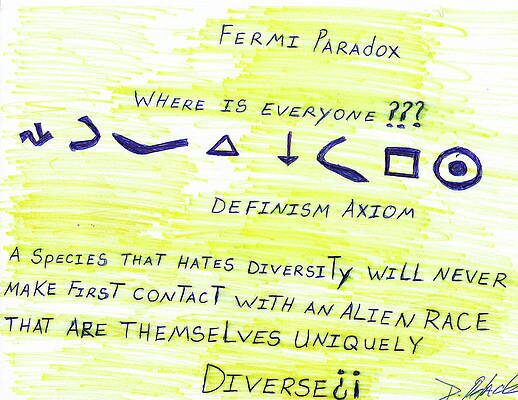 FERMI PARADOX
WHERE IS EVERYONE ???
DEFINISM AXIOM
A SPECIES THAT HATES DIVERSITY WILL NEVER
MAKE FIRST CONTACT WITH AN ALIEN RACE
THAT ARE THEMSELVES UNIQUELY
DIVERSE¿¡